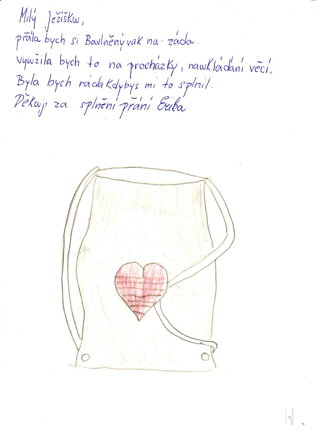 Milý Ježíšku,
přála bych si Bavlněný vak na záda.
využila bych to na procházky, na vkládání věcí.
Byla bych ráda kdybys mi to splnil.
Děkuji za splnění přání